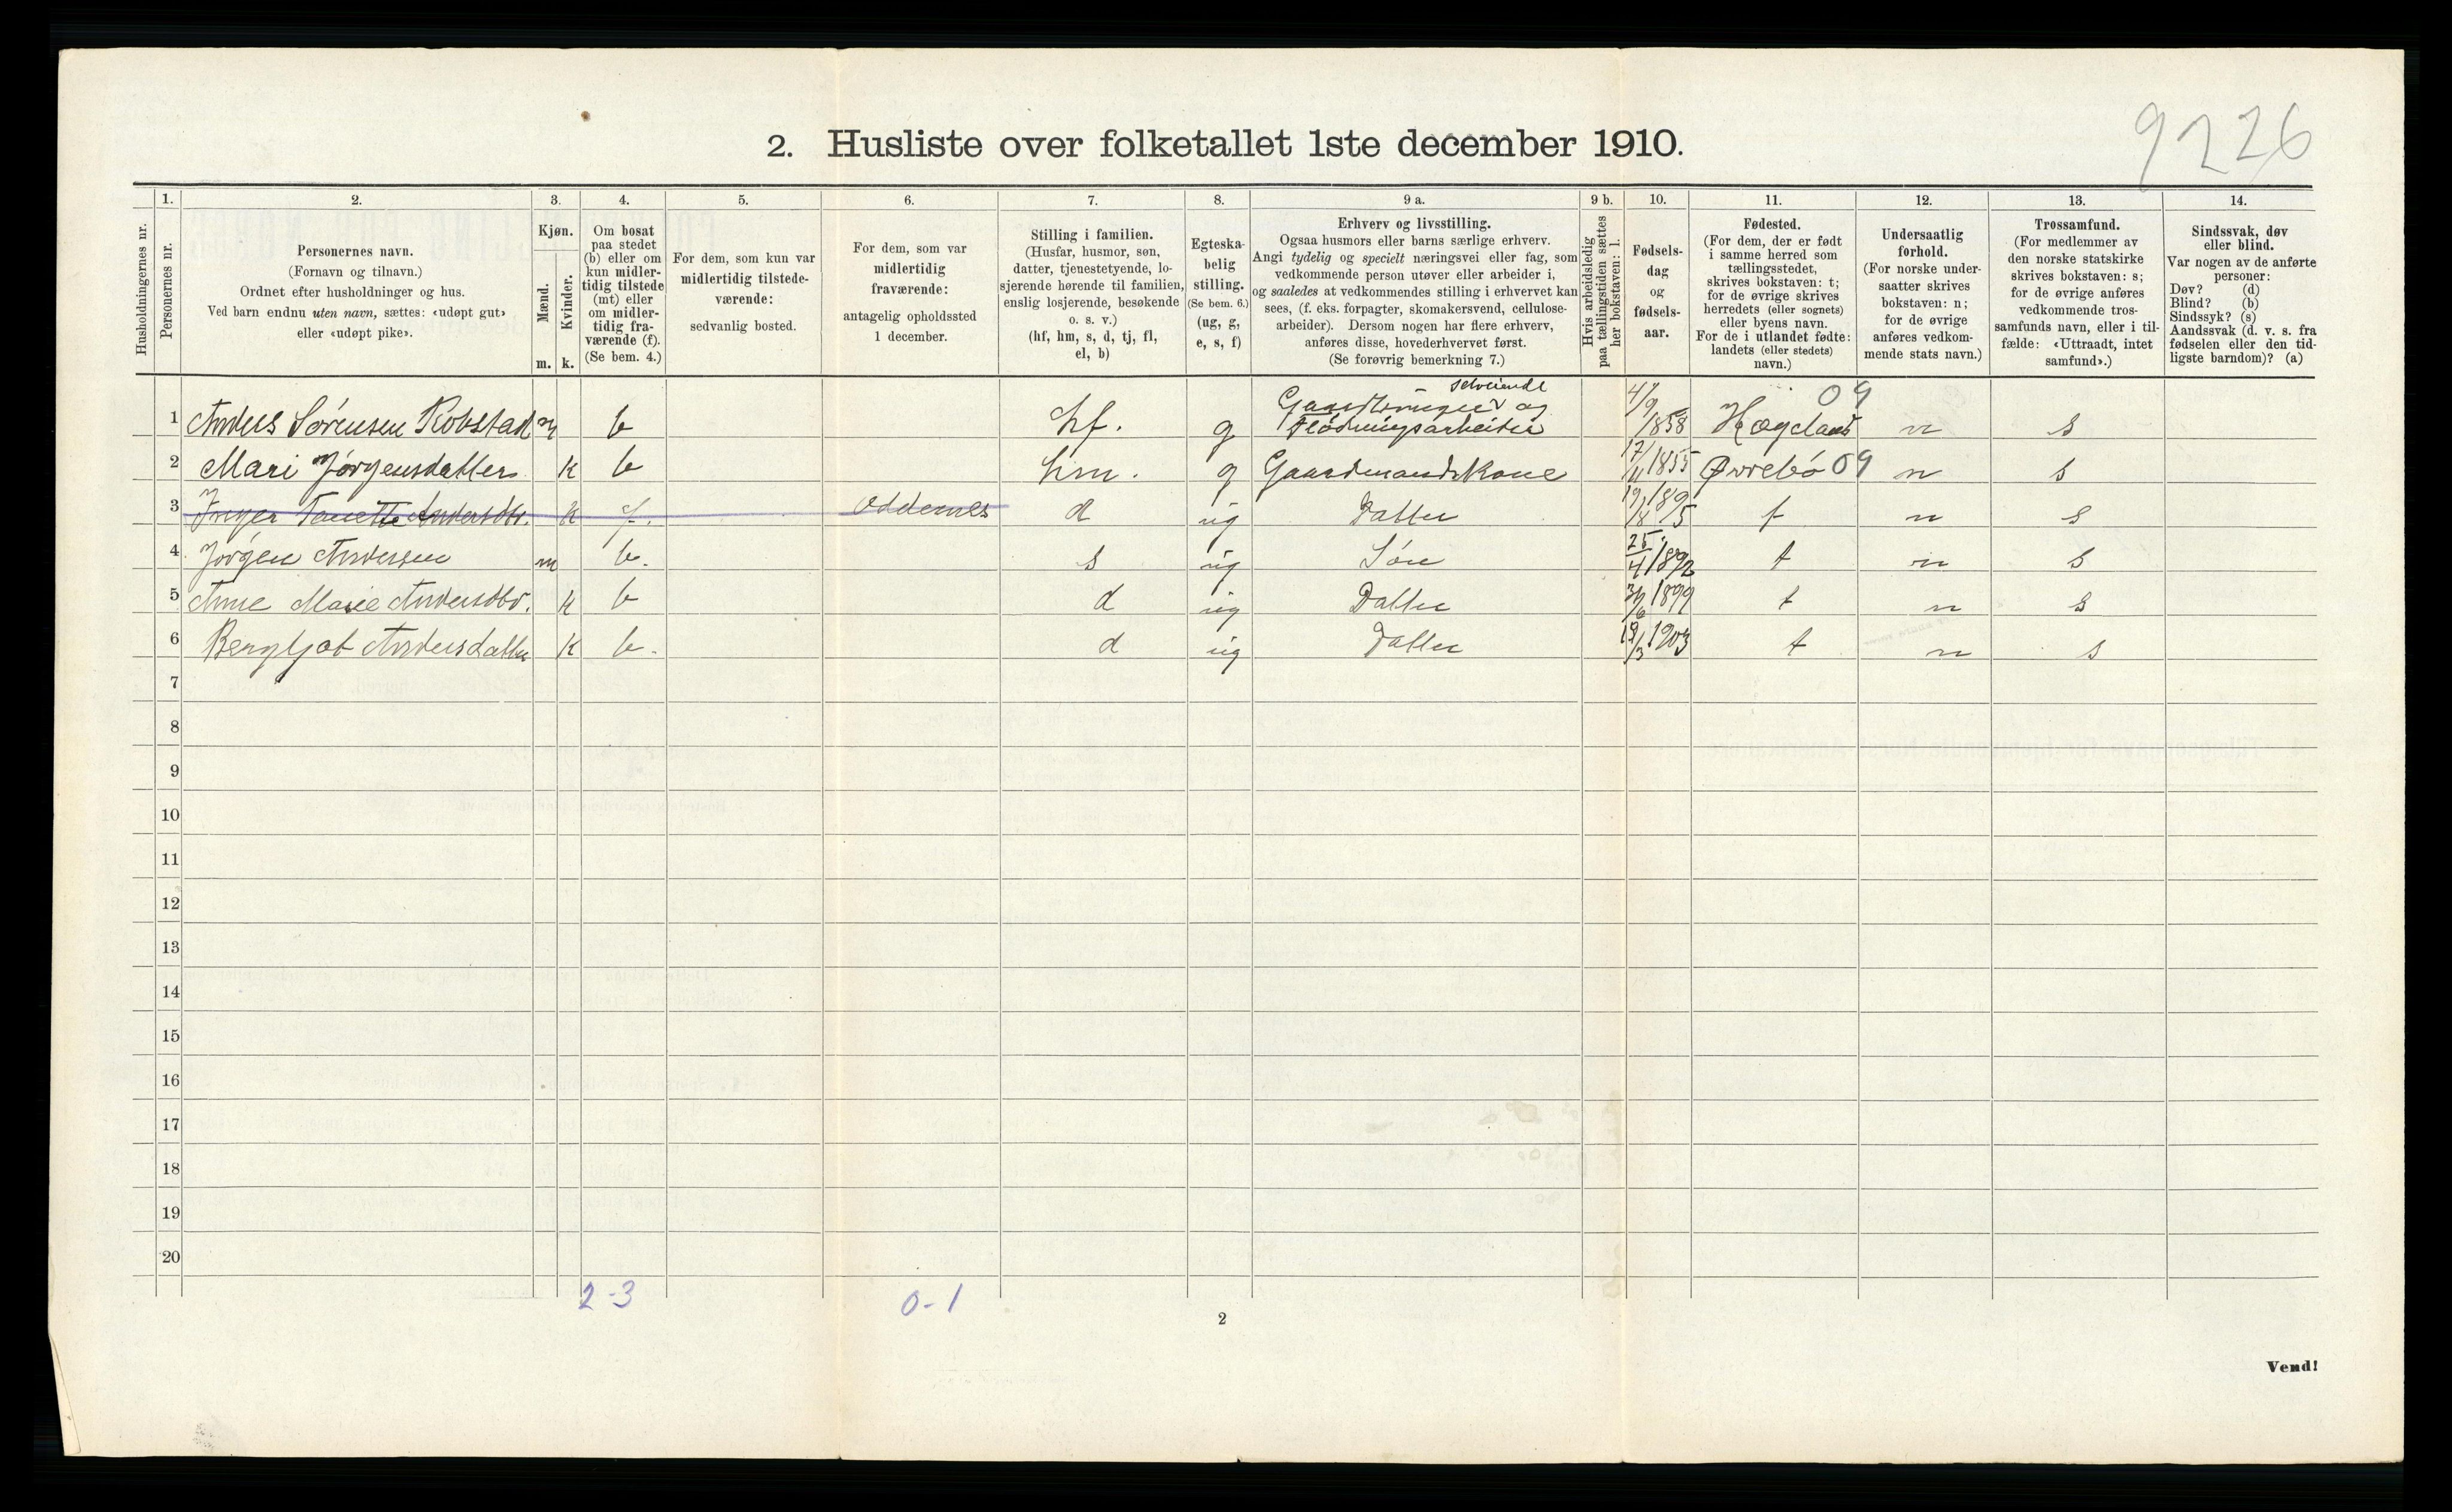 9226
2. Husliste over folketallet 1ste december 1910.
Husholdningernes nr.
1.
Personernes nr.
2.
Personernes navn.
(Fornavn og tilnavn.)
Ordnet efter husholdninger og hus.
Ved barn endnu uten navn, sættes: «udøpt gut»
eller «udøpt pike».
3.
Kjøn.
Mænd.
m.
Kvinder.
k.
4.
Om bosat
paa stedet
(b) eller om
kun midler-
tidig tilstede
(mt) eller
om midler-
tidig fra-
værende (f).
(Se bem. 4.)
5.
For dem, som kun var
midlertidig tilstede-
værende:
sedvanlig bosted.
6.
For dem, som var
midlertidig
fraværende:
antagelig opholdssted
1 december.
7.
Stilling i familien.
(Husfar, husmor, søn,
datter, tjenestetyende, lo-
sjerende hørende til familien,
enslig losjerende, besøkende
o. s. v.)
(hf, hm, s, d, tj, fl,
el, b)
8.
Egteska-
belig
stilling.
(Se bem. 6.)
(ug, g,
e, s, f)
9 a.
Erhverv og livsstilling.
Ogsaa husmors eller barns særlige erhverv.
Angi tydelig og specielt næringsvei eller fag, som
vedkommende person utøver eller arbeider i,
og saaledes at vedkommendes stilling i erhvervet kan
sees, (f. eks. forpagter, skomakersvend, cellulose-
arbeider). Dersom nogen har flere erhverv,
anføres disse, hovederhvervet først.
(Se forøvrig bemerkning 7.)
9 b.
Hvis arbeidsledig
paa tællingstiden sættes
her bokstaven: l.
10.
Fødsels-
dag
og
fødsels-
aar.
11.
Fødested.
(For dem, der er født
i samme herred som
tællingsstedet,
skrives bokstaven: t;
for de øvrige skrives
herredets (eller sognets)
eller byens navn.
For de i utlandet fødte:
landets (eller stedets)
navn.)
12.
Undersaatlig
forhold.
(For norske under-
saatter skrives
bokstaven: n;
for de øvrige
anføres vedkom-
mende stats navn.)
13.
Trossamfund.
(For medlemmer av
den norske statskirke
skrives bokstaven: s;
for de øvrige anføres
vedkommende tros-
samfunds navn, eller i til-
fælde: «Uttraadt, intet
samfund».)
14.
Sindssvak, døv
eller blind.
Var nogen av de anførte
personer:
Døv? (d)
Blind? (b)
Sindssyk? (s)
Aandssvak (d. v. s. fra
fødselen eller den tid-
ligste barndom)? (a)
selveiende 09
1 Anders Sørensen Robstad m b hf. g Gaardbruger og Flødningsarbeider 4/9 1858 Hægeland n s
2 Mari Jørgensdatter k b hm. g Gaardmandskone 17/11 1855 Øvrebø 09 n s
3 Inger Tanette Andersdtr. k f. Oddernes d ug Datter 1895 t n s
4 Jørgen Andersen m b. s ug Søn 25/4 1892 t n s
5 Anne Marie Andersdtr. k b d ug Datter 1899 t n s
6 Bergljot Andersdatter k b. d ug Datter 19/3 1903 t n s
7
8
9
10
11
12
13
14
15
16
17
18
19
20
2-3 0-1
2
Vend!